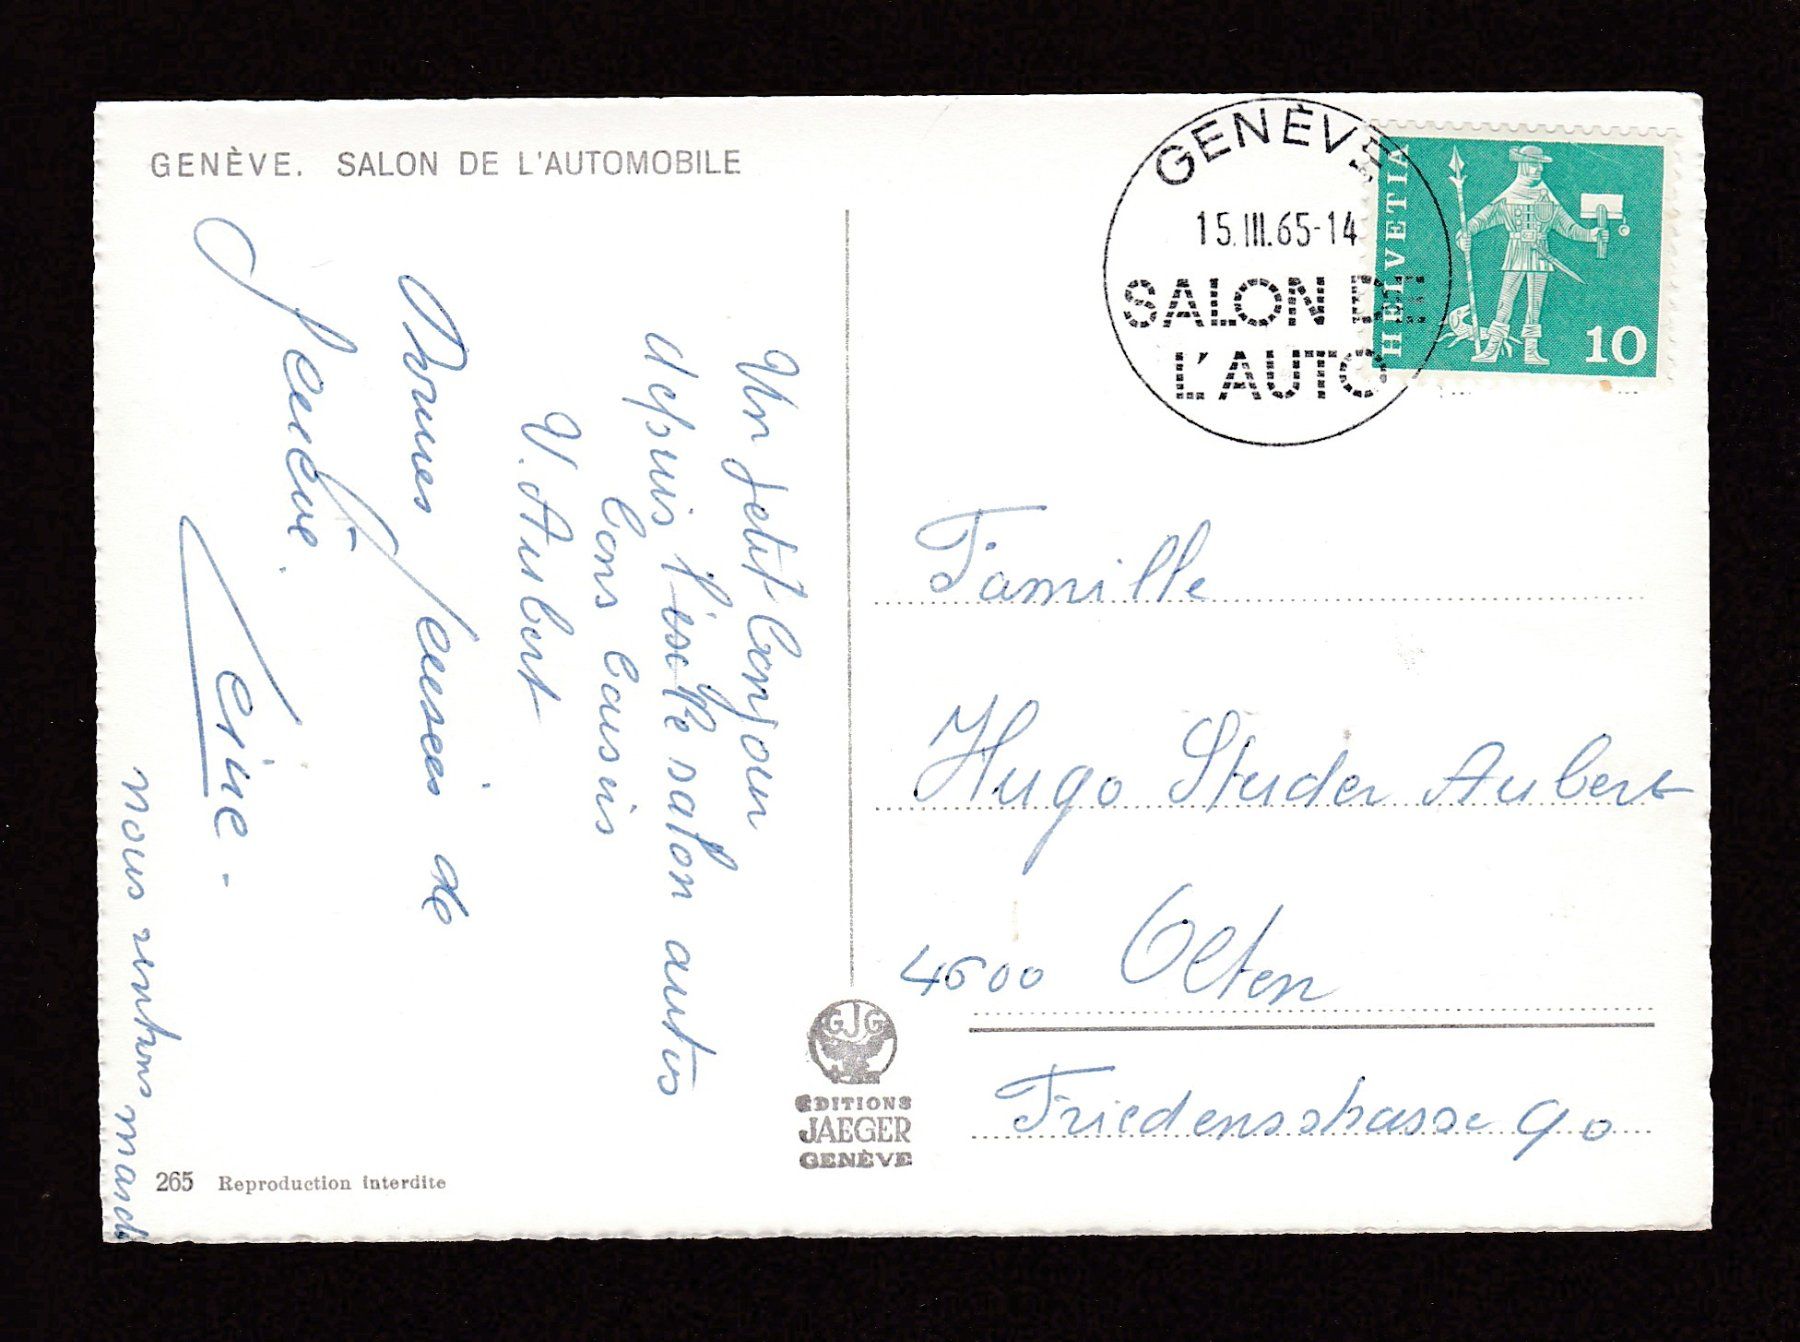 GENÈVE. SALON DE L'AUTOMOBILE
GENÈVE
15.III.65-14
SALON DE
L'AUTO
HELVETIA
10
Un petit bonjour
depuis salon autos
Cousin
V. Aubert
Bonnes pensées de
nous rentrons mardi
Famille
Hugo Studer Aubert
4600 Olten
Friedensstrasse 90
GJG
EDITIONS
JAEGER
GENÈVE
265 Reproduction interdite